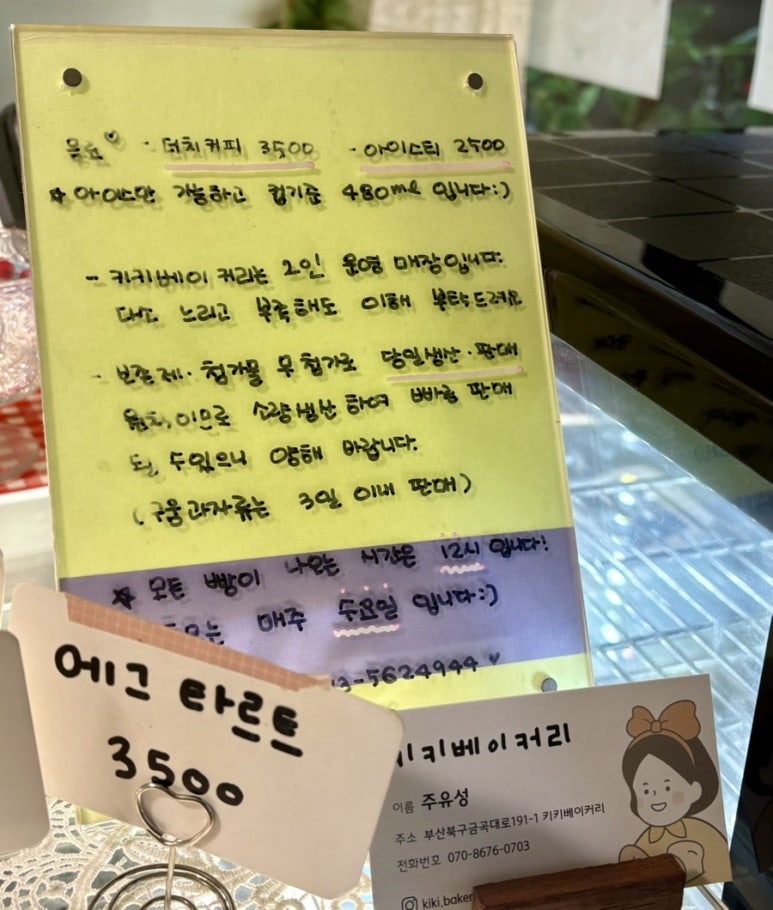 음료♡ · 더치커피 3500 · 아이스티 2500
☆ 아이스만 가능하고 컵기준 480ml 입니다:)
- 키키베이커리는 2인 운영 매장입니다.
다소 느리고 부족해도 이해 부탁드려요
- 보존제·첨가물 무첨가로 당일생산·판매
원칙,이므로 소량생산하여 빠르 판매
될 수있으니 양해 바랍니다.
(구움과자류는 3일 이내 판매)
☆ 모든 빵이 나오는 시간은 12시 입니다!
매주 수요일 입니다:)
-5624944 ♥
에그 타르트
3500
키키베이커리
이름 주유성
주소 부산북구금곡대로191-1 키키베이커리
전화번호 070-8676-0703
kiki.baker